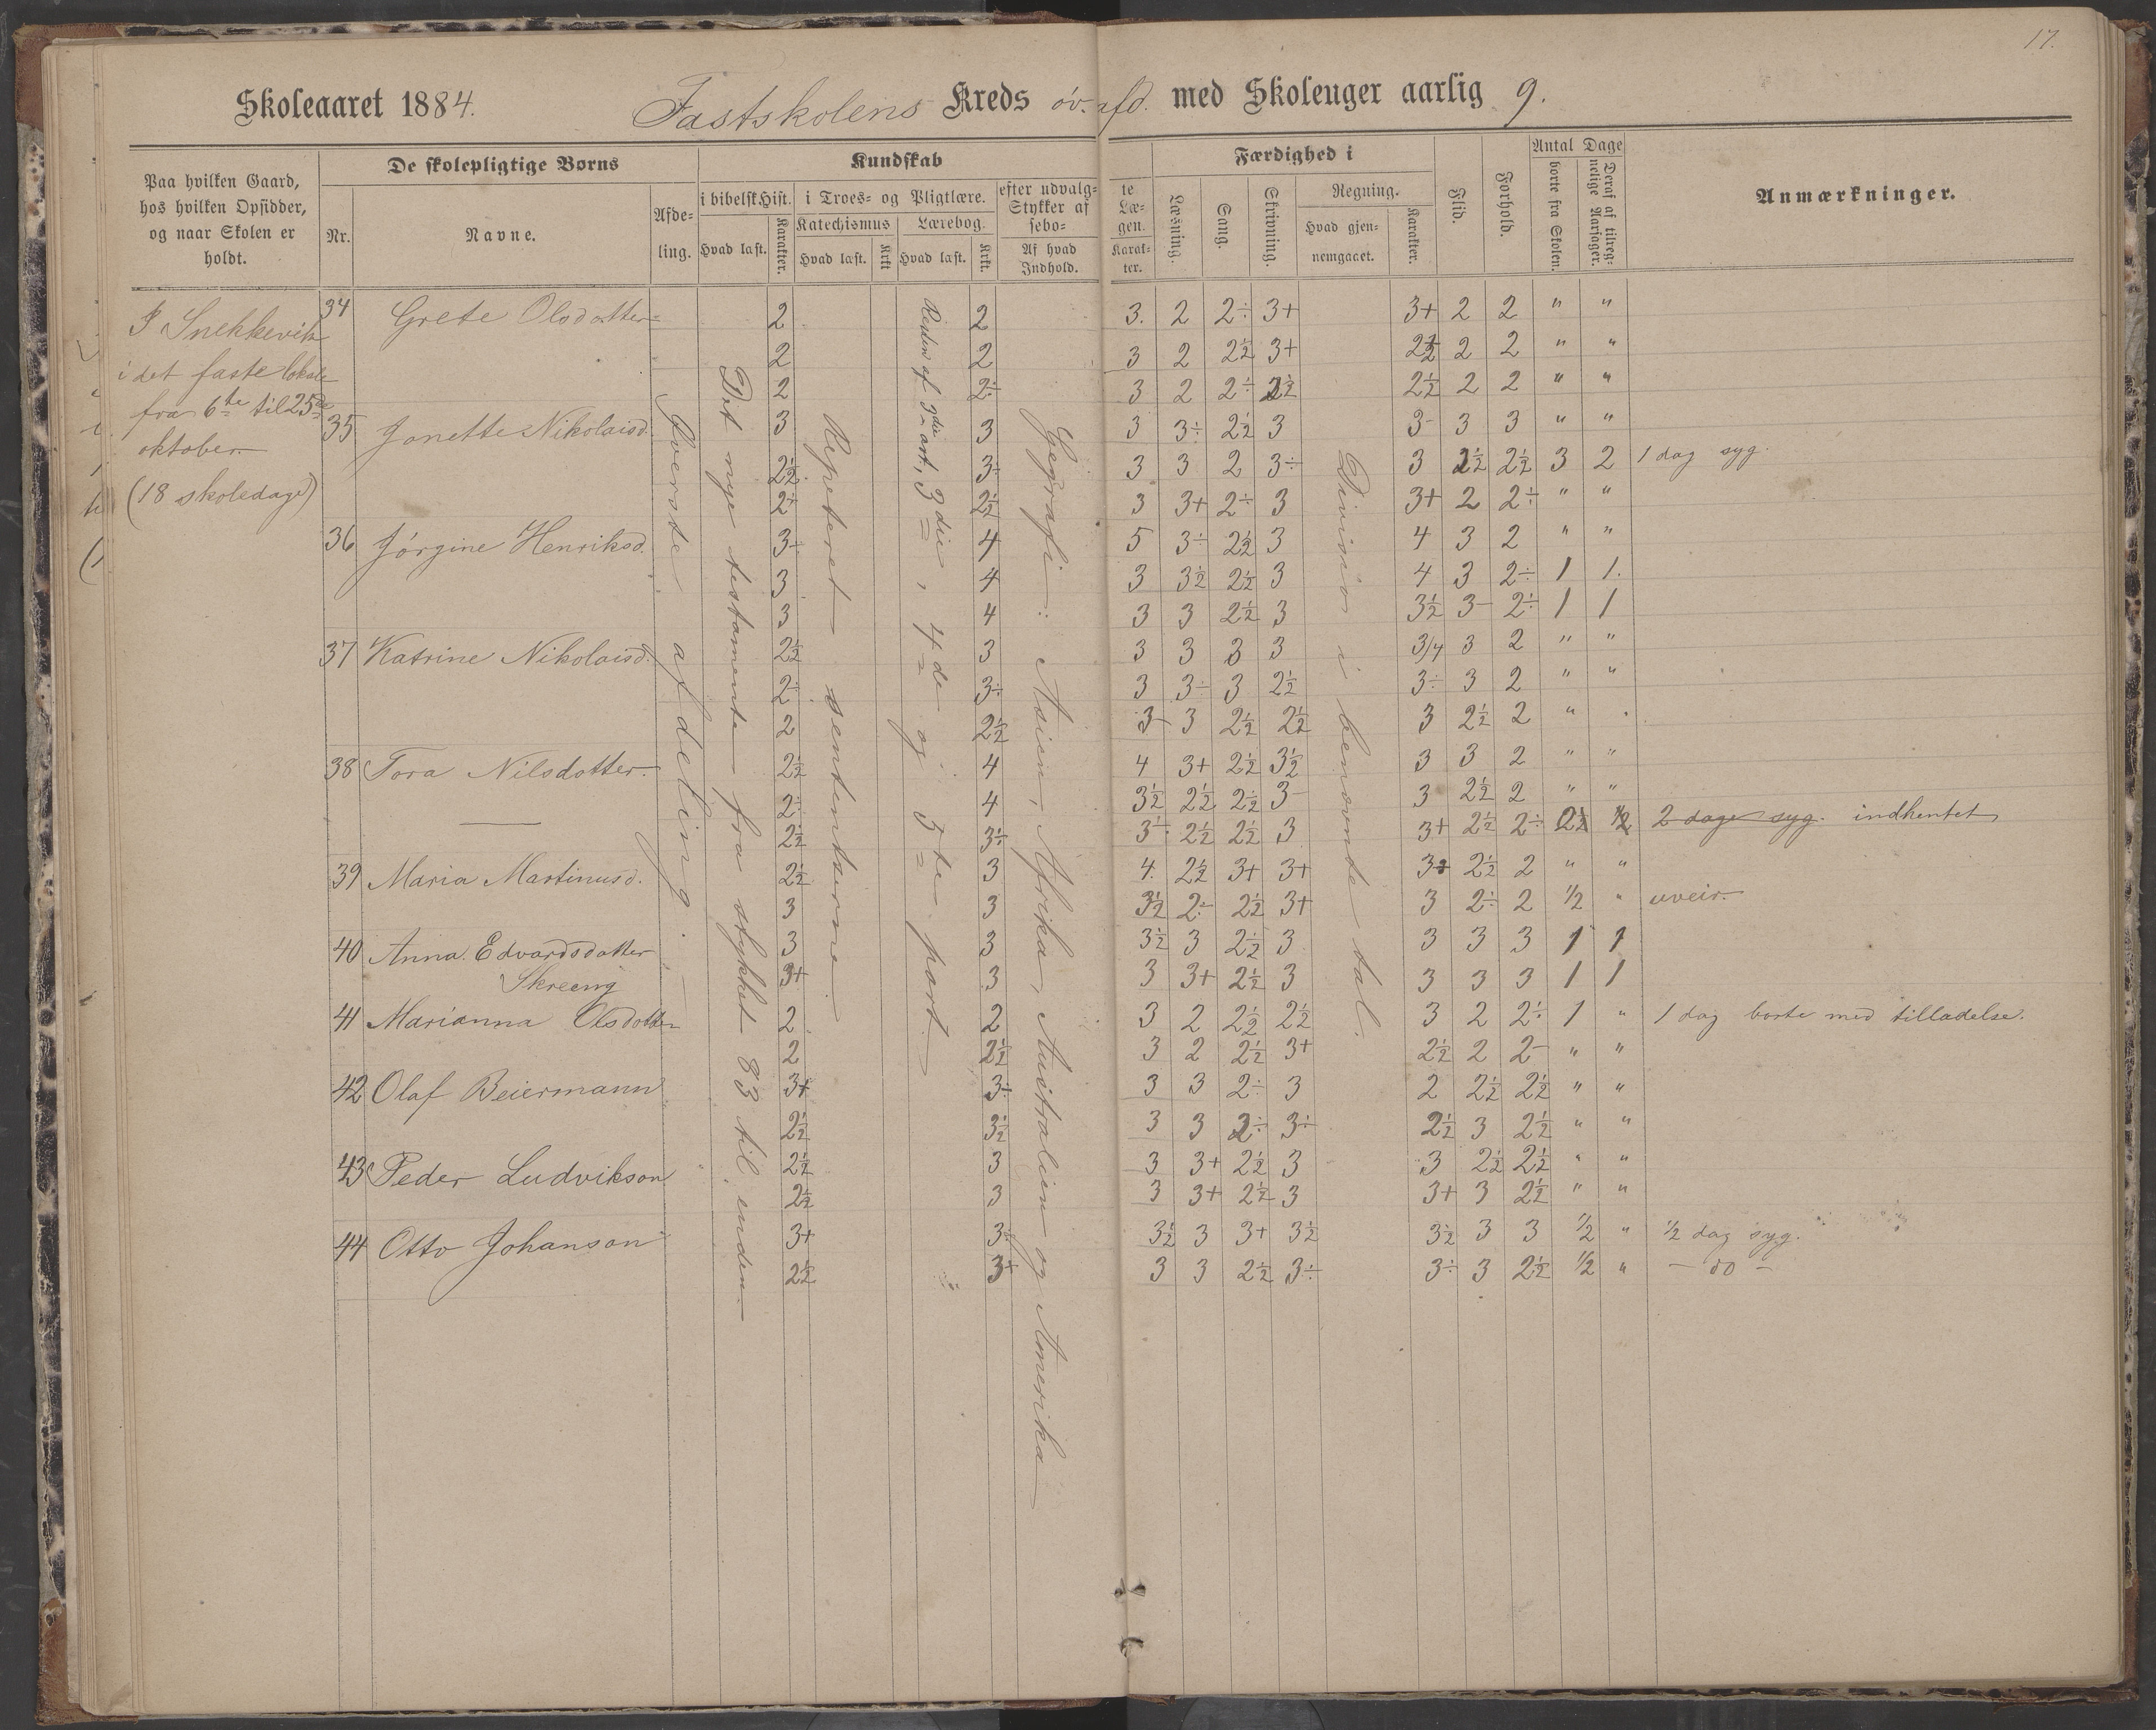 17.
Skoleaaret 1884. Fastskolens Kreds øv. afd. med Skoleuger aarlig 9.
Paa hvilken Gaard, hos hvilken Opsidder, og naar Skolen er holdt.
De skolepligtige Børns
Nr.
Navne.
Afde-
ling.
Kundskab
i bibelsk Hist.
Hvad læst.
Karakter.
i Troes- og Pligtlære.
Katechismus
Hvad læst.
Krkt
Lærebog.
Hvad læst.
Krkt.
efter udvalg-
Stykker af
sebo-
Af hvad
Indhold.
te
Læ-
gen.
Karak-
ter.
Færdighed i
Læsning.
Sang.
Skrivning.
Regning.
Hvad gjen-
nemgaaet.
Karakter.
Flid.
Forhold.
Antal Dage
borte fra Skolen.
Deraf af tilreg-
nelige Aarsager.
Anmærkninger.
I Snekkevik
i det faste lokale
fra 6te til 25de
oktober.
(18 skoledage)
Øverste afdeling.
Det nye testamente fra stykket 83 til enden.
Repeteret sententserne.
Resten af 3die art., 3die, 4de og 5te part
Geografi: Asien, Afrika, Australien og Amerika
Division i benævnte tal.
34 Grete Olsdatter 2 2 3. 2 2÷ 3+ 3+ 2 2 " "
2 2 3 2 2½ 3+ 2½ 2 2 " "
2 2÷ 3 2 2÷ 2½ 2½ 2 2 " "
35 Jonette Nikolaisd. 3 3 3 3÷ 2½ 3 3- 3 3 " "
2½ 3÷ 3 3 2 3÷ 3 2½ 2½ 3 2 1 dag syg.
2÷ 2½ 3 3+ 2÷ 3 3+ 2 2÷ " "
36 Jørgine Henriksd. 3÷ 4 5 3÷ 2½ 3 4 3 2 " "
3 4 3 3½ 2½ 3 4 3 2÷ 1 1.
3 4 3 3 2½ 3 3½ 3- 2÷ 1 1
37 Katrine Nikolaisd. 2½ 3 3 3 3 3 3/4 3 2 " "
2÷ 3÷ 3 3÷ 3 2½ 3÷ 3 2 " "
2 2½ 3÷ 3 2½ 2½ 3 2½ 2 "
38 Tora Nilsdotter. 2½ 4 4 3+ 2½ 3½ 3 3 2 " "
2÷ 4 3½ 2½ 2½ 3- 3 2½ 2 " "
2½ 3÷ 3÷ 2½ 2½ 3 3+ 2½ 2÷ 2½ ½ 2 dage syg. indhentet
39 Maria Martinusd. 2½ 3 4. 2½ 3+ 3+ 3+ 2½ 2 " "
3 3 3½ 2÷ 2½ 3+ 3 2÷ 2 ½ " uveir.
40 Anna Edvardsdatter 3 3 3½ 3 2½ 3 3 3 3 1 1
Skreeng 3+ 3 3 3+ 2½ 3 3 3 3 1 1
41 Marianna Olsdotter 2 2 3 2 2½ 2½ 3 2 2÷ 1 " 1 dag borte med tilladelse.
2 2½ 3 2 2½ 3+ 2½ 2 2- " "
42 Olaf Beiermann 3+ 3÷ 3 3 2÷ 3 2 2½ 2½ " "
2½ 3½ 3 3 2÷ 3÷ 2½ 3 2½ " "
43 Peder Ludvikson 2½ 3 3 3+ 2½ 3 3 2½ 2½ " "
2½ 3 3 3+ 2½ 3 3+ 3 2½ " "
44 Otto Johanson 3+ 3÷ 3½ 3 3+ 3½ 3½ 3 3 ½ " ½ dag syg.
2½ 3+ 3 3 2½ 3÷ 3÷ 3 2½ ½ " - do -